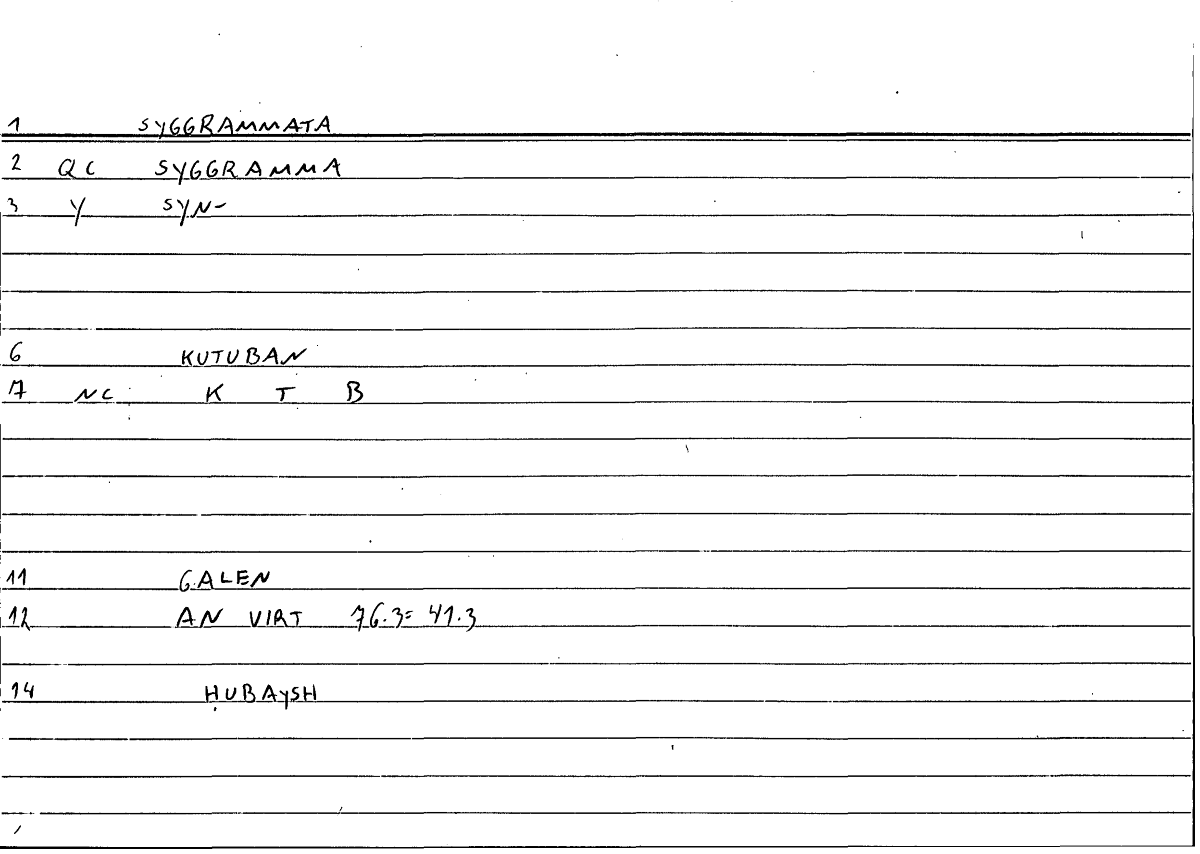 1 SYGGRAMMATA
2 QC SYGGRAMMA
3 Y SYN-
6 KUTUBAN
7 NC K T B
11 GALEN
12 AN VIRT 76.3= 41.3
14 ḤUBAYSH